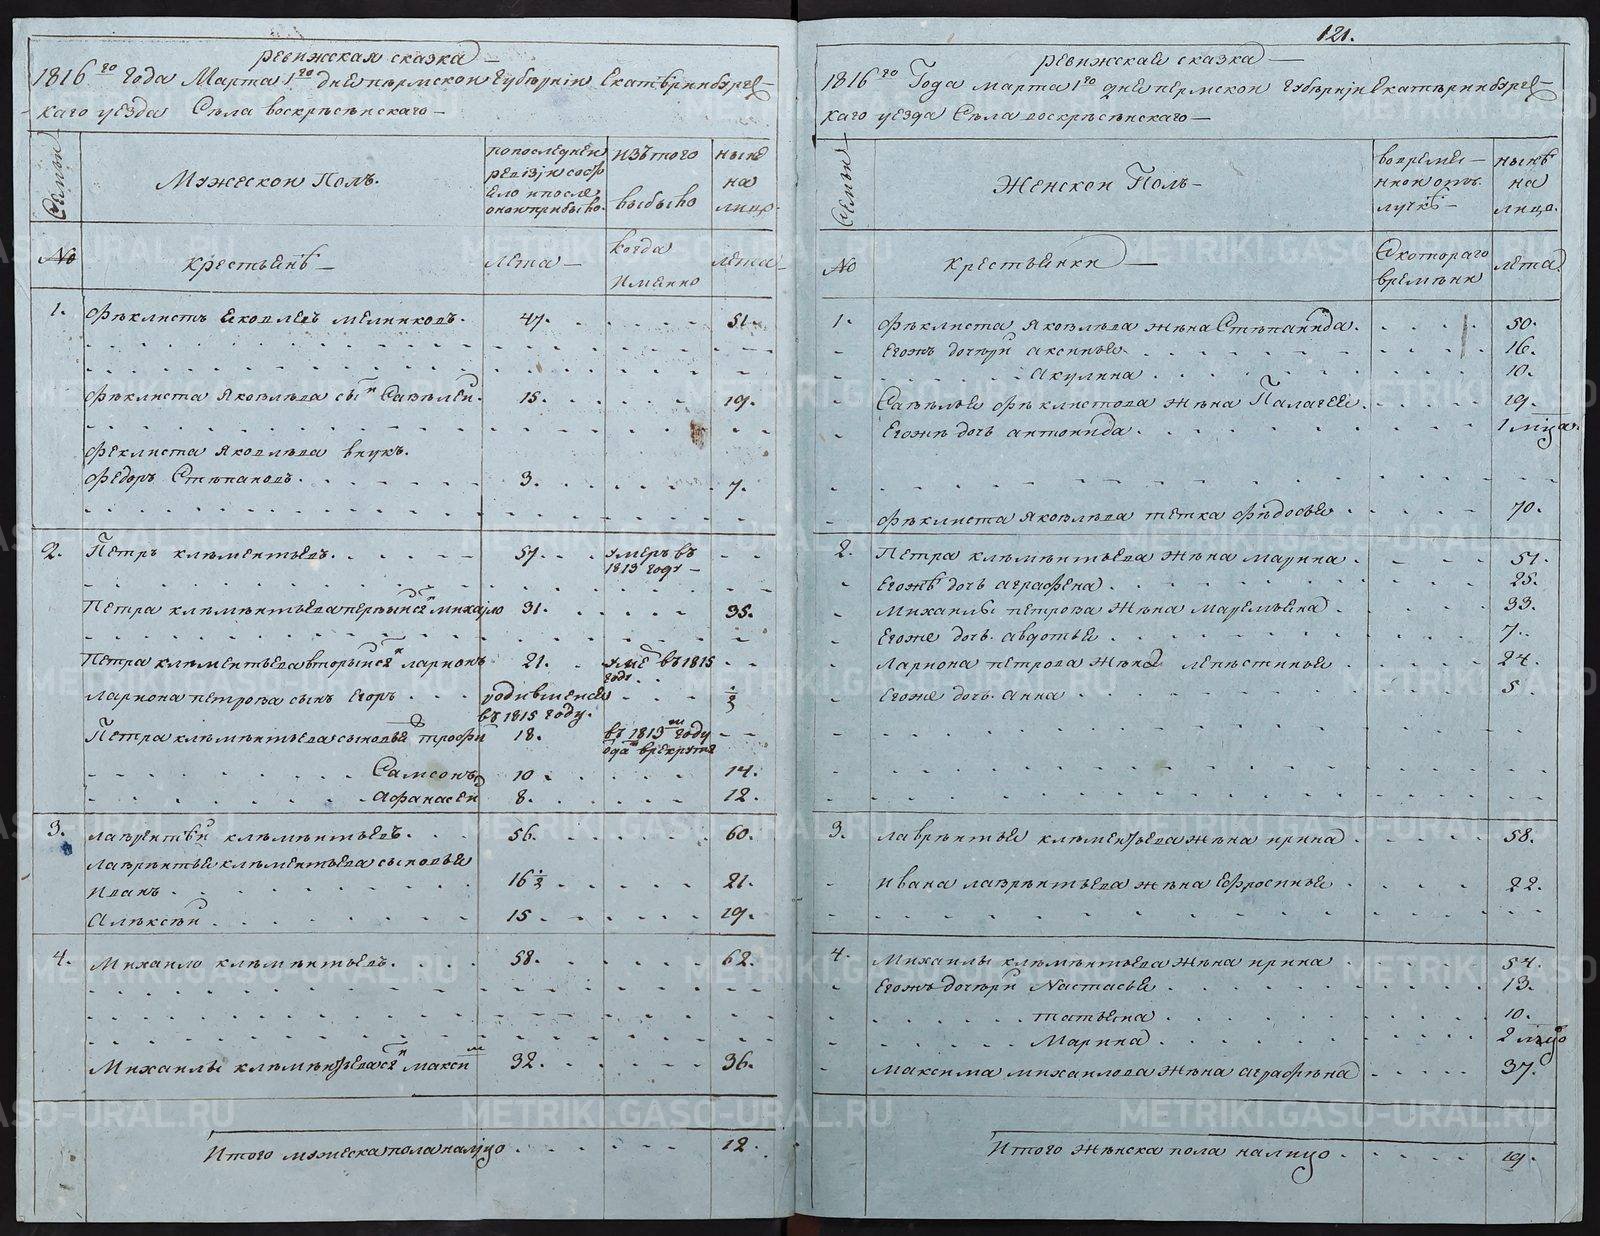 121.
ревижская сказка
1816 го Года Марта 1 го дня пермской губернiи Екатѣринбургс-
каго уезда Сѣла воскрѣсѣнскаго
Семьи
Мужескои Полъ.
попоследнеи
ревизiи сост
яло и после
онои прибыло.
изътого
выбыло
ныне
на
лицо.
№
крестьянѣ
лѣта
когда
Имянно
лѣта
1.
Фѣклистъ Яковлевъ мелниковъ.
47.
51.
Фѣклиста Яковлѣва сынъ Савѣлеи.
15.
19.
феклиста Яковлѣва внукъ.
Федоръ Стѣпановъ.
3.
7.
2.
Петръ клѣментьевъ.
57.
умеръ въ
1813 годѵ
Петра клѣмѣнтьева первыи сынъ михаило
31.
35.
Петра клѣментьева вторыи сынъ ларионъ
21.
умеръ въ 1815
годѵ.
лариона петрова сынъ Егоръ
родившеися
въ 1815 году.
1/2
Петра клѣмѣнтьева сыновья трофим
18.
въ 1813 м году
отданъ врекруты
Самсонъ
10
14.
Афанасеи
8.
12.
3.
лаврентѣи клѣмѣнтьевъ.
56.
60.
лаврѣнтья клѣментьева сыновья
Иванъ
16 1/2
21.
Алѣксѣи
15
19.
4.
Михаило клѣмѣнтьевъ.
58.
62.
Михаилы клѣмѣнтьева сынъ максим
32.
36.
Итого мужеска пола налицо
12.
ревижская сказка
1816 го Года марта 1 го дня пермскои губѣрнiи Екатѣринбургс-
каго уезда Сѣла воскрѣсѣнскаго
Семьи
Женскои Полъ
вовремян-
нои отъ-
лучкѣ
нынѣ
на
лицо.
№
крестьянки
Скотораго
времѣни
лѣта.
1.
Фѣклиста Яковлѣва жѣна Стѣпанида.
50.
Егожъ дочѣри аксинья.
16.
Акулина
10.
Савѣлья фѣклистова жѣна Палагея.
19.
Егожѣ дочь антонида.
1 мѣца.
Фѣклиста Яковлѣва тетка Фѣдосья
70.
2.
Петра клѣмѣнтьева жѣна марина.
51.
Егожѣ дочь аграфена.
25.
Михаилы петрова жѣна маремьяна.
33.
Егоже дочь. авдотья
7.
Лариона петрова жѣна лепѣстинья
24.
Егоже дочь анна
5
3.
лаврѣнтья клѣментьева жѣна ирина
58.
Ивана лаврѣнтьева жѣна Ефросинья
22.
4.
Михаилы клѣмѣнтьева жѣна ирина
54.
Егожъ дочѣри Настасья
13.
татьяна
10.
Марина
2 мѣцо
Максима михаилова жѣна аграфѣна
37.
Итого жѣнска пола налицо
19.
METRIKI.GASO-URAL.RU